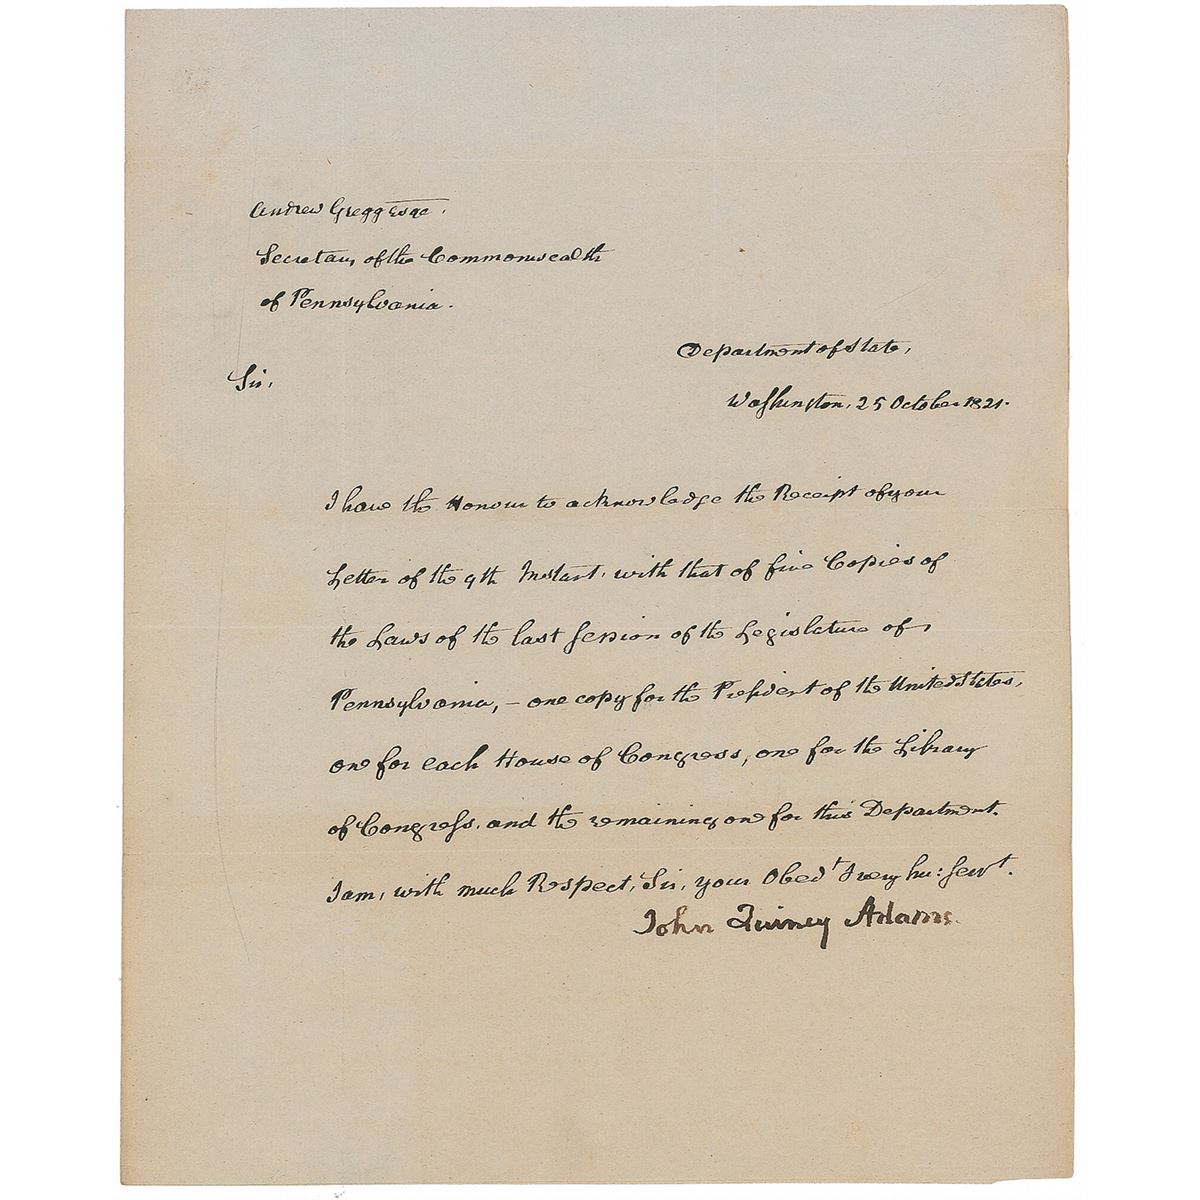 Andrew Gregg Esqe.
Secretary of the Commonwealth
of Pennsylvania.
Department of State,
Washington, 25 October 1821.
Sir,
I have the Honour to acknowledge the Receipt of your
Letter of the 9th Instant, with that of five Copies of
the Laws of the last Session of the Legislature of
Pennsylvania, – one copy for the President of the United States,
one for each House of Congress, one for the Library
of Congress, and the remaining one for this Department.
I am, with much Respect, Sir, your Obedt & very hu: Servt.
John Quincy Adams.